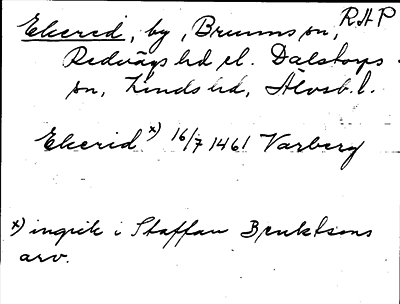 RAP
Ekerid, by, Brunns sn,
Redvägs hd el. Dalstorps
sn, Kinds hd, Älvsb. l.
Ekerid x) 16/7 1461 Varberg
x) ingick i Staffan Bruktsons
arv.